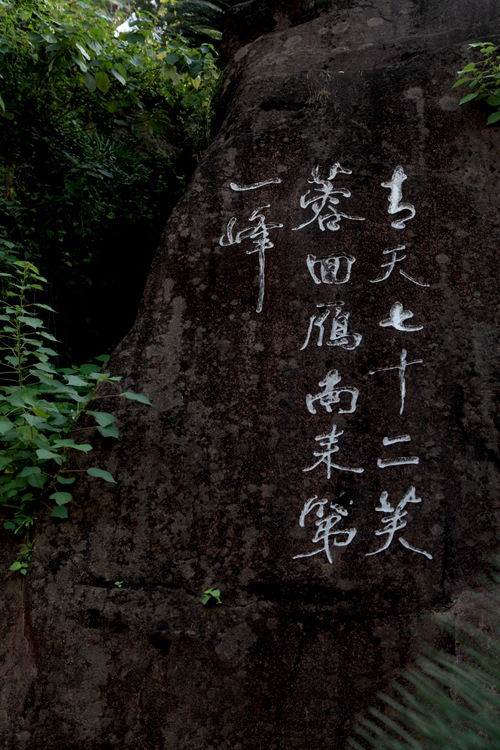 青天七十二芙
蓉回雁南来第
一峰